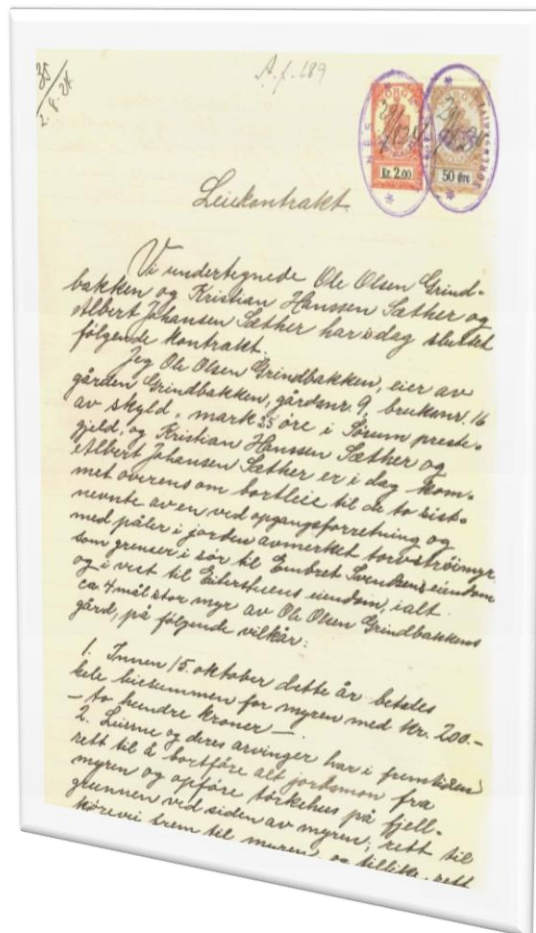 35
2.8.24
A.f. 189
NES
Kr. 2.00
50 øre
SORENSKRIVER
Leiekontrakt.
Vi undertegnede Ole Olsen Grind-
bakken og Kristian Hanssen Sæther og
Albert Johansen Sæther har idag sluttet
følgende kontrakt.
Jeg Ole Olsen Grindbakken, eier av
gården Grindbakken, gårdsnr. 9, bruksnr. 16
av skyld, mark 25 øre i Sørum preste-
gjeld, og Kristian Hanssen Sæther og
Albert Johansen Sæther er i dag kom-
met overens om bortleie til de to sist-
nevnte av en ved opgangsforretning og
med påler i jorden avmerket torvstrøimyr,
som grenser i sør til Embret Svendsens eiendom
og i vest til eiendom, ialt
ca 4 mål stor myr av Ole Olsen Grindbakkens
gård, på følgende vilkår:
1. Innen 15. oktober dette år betales
hele leiesummen for myren med Kr. 200.-
- to hundre kroner -
2. Leierne og deres arvinger har i fremtiden
rett til å bortføre alt jordsmon fra
myren og opføre tørkehus på fjell-
grunnen ved siden av myren; rett til
kjørevei frem til myren, og tillike rett